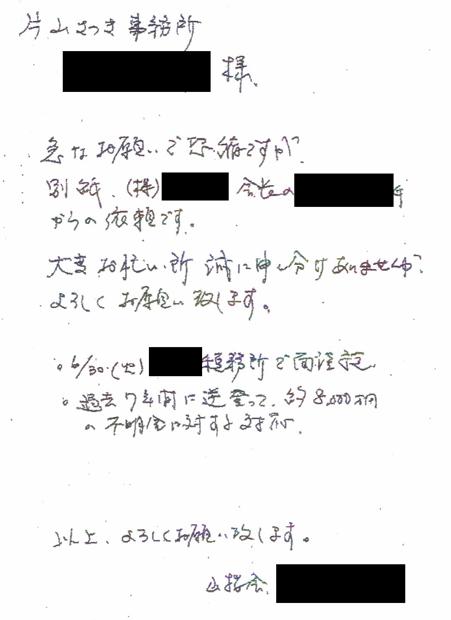 片山さつき事務所
様
急なお願いで恐縮ですが、
別紙、(株) 会長の
からの依頼です。
大変お忙しい所 誠に申し分けありませんが、
よろしくお願い致します。
。6/30.(火) 税務所で面談
。過去7年間に逆登って、約8,000万円
の不明金に対する対応.
以上、よろしくお願い致します。